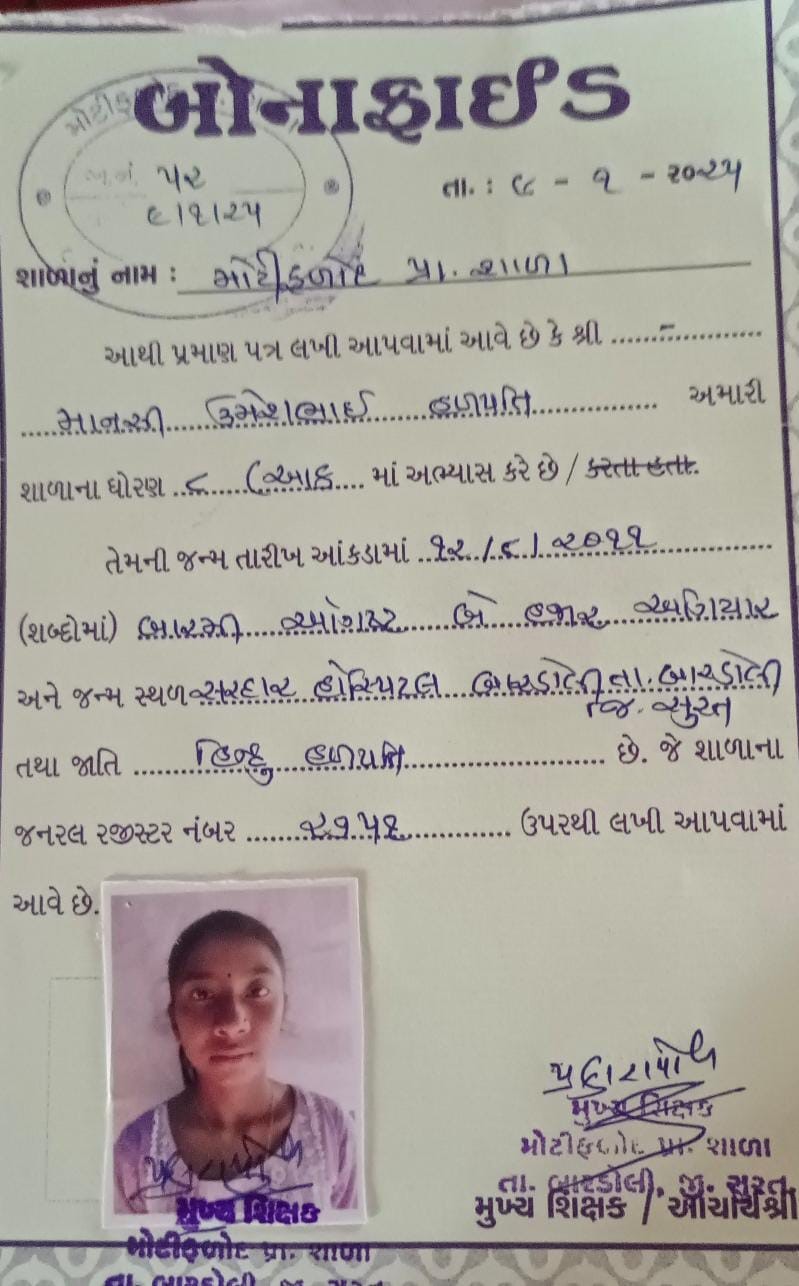 બોનાફાઈડ
૫૨
૯/૧/૨૫
તા. : ૯ - ૧ - ૨૦૨૫
શાળાનું નામ : મોટીફળોદ પ્રા. શાળા
આથી પ્રમાણ પત્ર લખી આપવામાં આવે છે કે શ્રી
માનસી ઉમેશભાઈ હળપતિ અમારી
શાળાના ધોરણ ૮ (આઠ માં અભ્યાસ કરે છે / કરતા હતા.
તેમની જન્મ તારીખ આંકડામાં ૧૨/૮/૨૦૧૧
(શબ્દોમાં) બારમી ઓગસ્ટ બે હજાર અગિયાર
અને જન્મ સ્થળ સરદાર હોસ્પિટલ બારડોલી તા. બારડોલી
જિ. સુરત
તથા જાતિ હિન્દુ હળપતિ છે. જે શાળાના
જનરલ રજીસ્ટર નંબર ૨૧૫૧ ઉપરથી લખી આપવામાં
આવે છે.
મુખ્ય શિક્ષક
મોટીફળોદ પ્રા. શાળા
તા. બારડોલી, જી. સુરત
મુખ્ય શિક્ષક / આચાર્યશ્રી
મુખ્ય શિક્ષક
મોટીફળોદ પ્રા. શાળા
તા. બારડોલી જી. સુરત